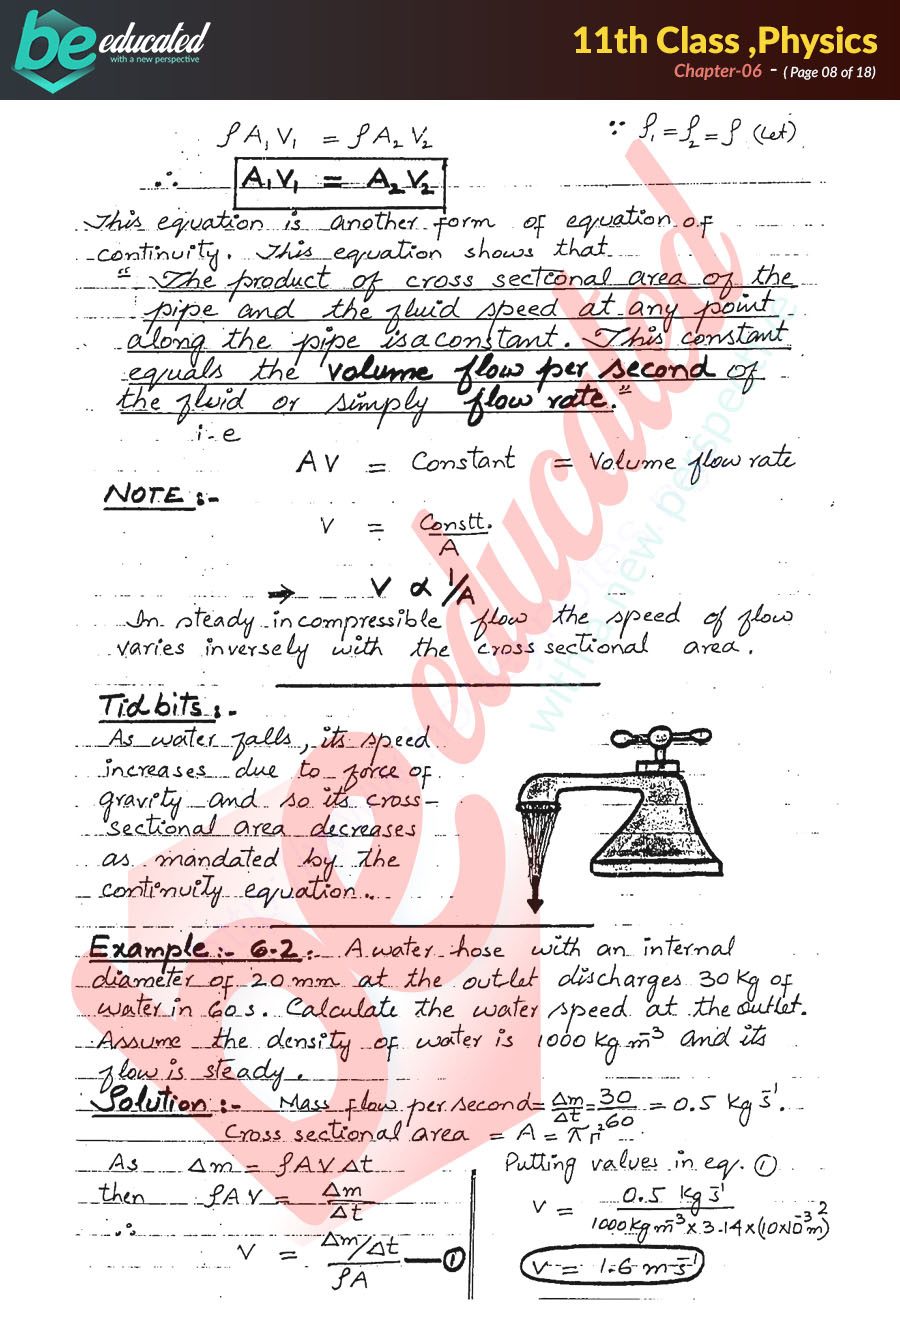 be educated
with a new perspective
11th Class ,Physics
Chapter-06 - ( Page 08 of 18)
ρA₁V₁ = ρA₂V₂ ∵ ρ₁=ρ₂=ρ (Let)
∴ A₁V₁ = A₂V₂
This equation is another form of equation of
continuity. This equation shows that
"The product of cross sectional area of the
pipe and the fluid speed at any point
along the pipe is a constant. This constant
equals the volume flow per second of
the fluid or simply flow rate."
i-e
AV = Constant = Volume flow rate
NOTE :-
V = Constt./A
→ V ∝ 1/A
In steady incompressible flow the speed of flow
varies inversely with the cross sectional area.
Tidbits :-
As water falls, its speed
increases due to force of
gravity and so its cross-
sectional area decreases
as mandated by the
continuity equation..
Example:- 6-2:- A water hose with an internal
diameter of 20 mm at the outlet discharges 30 Kg of
water in 60 s. Calculate the water speed at the outlet.
Assume the density of water is 1000 kg m⁻³ and its
flow is steady.
Solution :- Mass flow per second = Δm/Δt = 30/60 = 0.5 Kg s⁻¹.
Cross sectional area = A = πr²
As Δm = ρAVΔt
then ρAV = Δm/Δt
∴ V = Δm/Δt / ρA — ①
Putting values in eq. ①
V = 0.5 Kg s⁻¹ / 1000 Kg m⁻³ x 3.14 x (10x10⁻³m)²
V = 1.6 m s⁻¹
be educated
with a new perspective